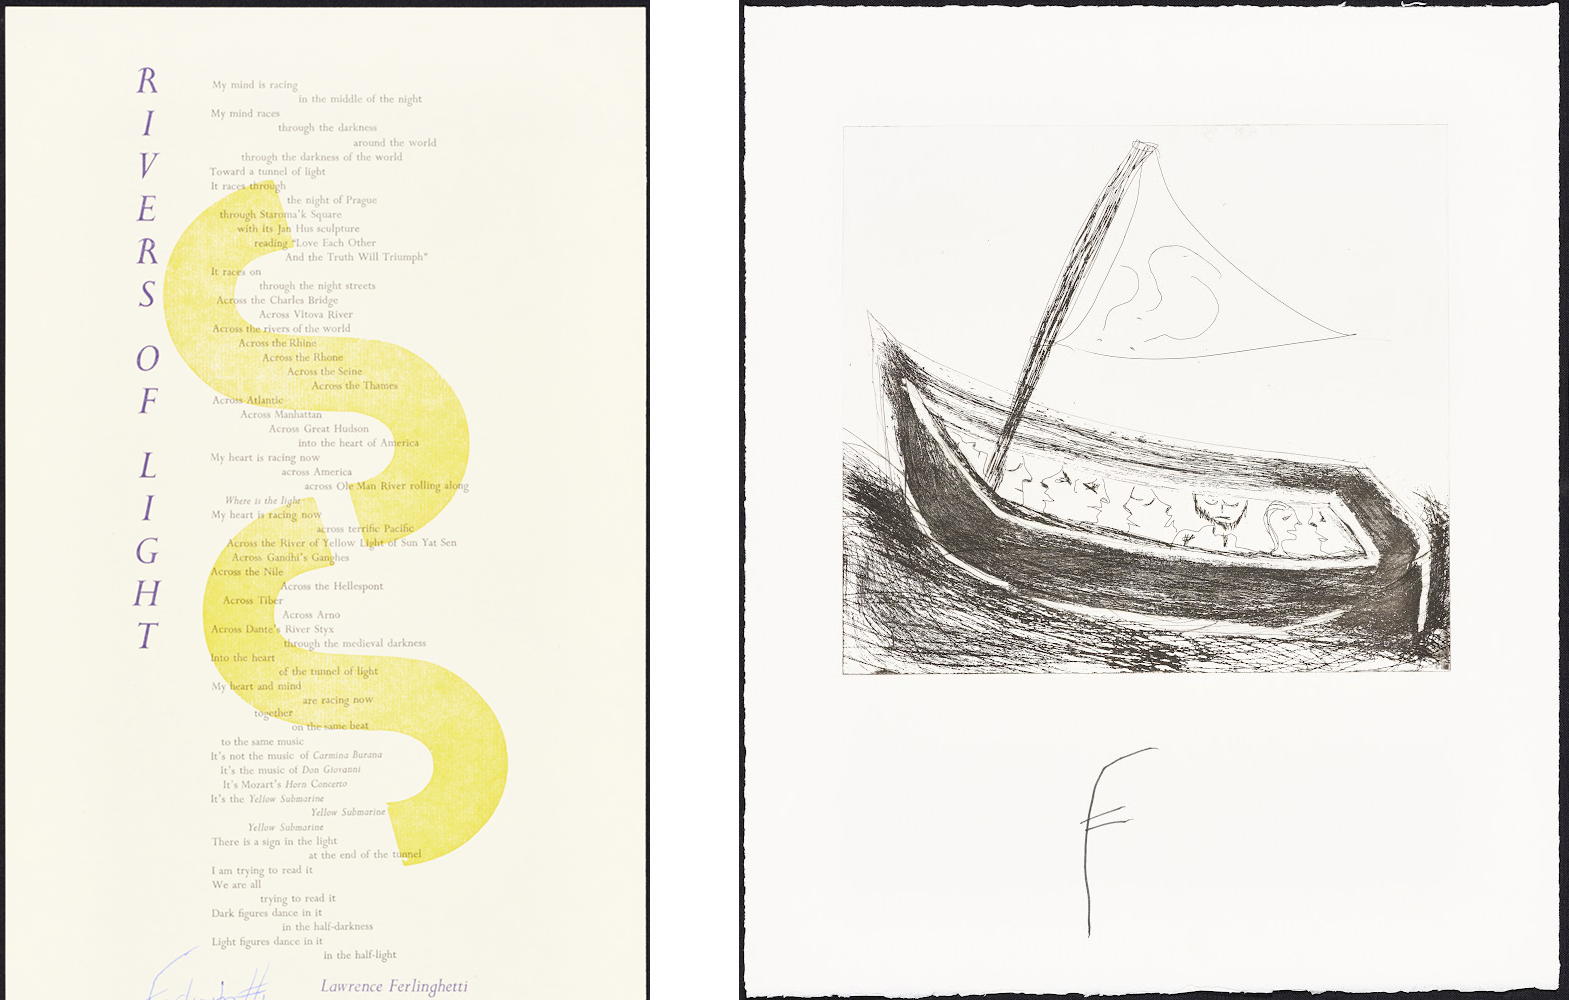 RIVERS OF LIGHT
My mind is racing
in the middle of the night
My mind races
through the darkness
around the world
through the darkness of the world
Toward a tunnel of light
It races through
the night of Prague
through Staroma'k Square
with its Jan Hus sculpture
reading "Love Each Other
And the Truth Will Triumph"
It races on
through the night streets
Across the Charles Bridge
Across Vltova River
Across the rivers of the world
Across the Rhine
Across the Rhone
Across the Seine
Across the Thames
Across Atlantic
Across Manhattan
Across Great Hudson
into the heart of America
My heart is racing now
across America
across Ole Man River rolling along
Where is the light
My heart is racing now
across terrific Pacific
Across the River of Yellow Light of Sun Yat Sen
Across Gandhi's Ganghes
Across the Nile
Across the Hellespont
Across Tiber
Across Arno
Across Dante's River Styx
through the medieval darkness
Into the heart
of the tunnel of light
My heart and mind
are racing now
together
on the same beat
to the same music
It's not the music of Carmina Burana
It's the music of Don Giovanni
It's Mozart's Horn Concerto
It's the Yellow Submarine
Yellow Submarine
Yellow Submarine
There is a sign in the light
at the end of the tunnel
I am trying to read it
We are all
trying to read it
Dark figures dance in it
in the half-darkness
Light figures dance in it
in the half-light
Lawrence Ferlinghetti
F